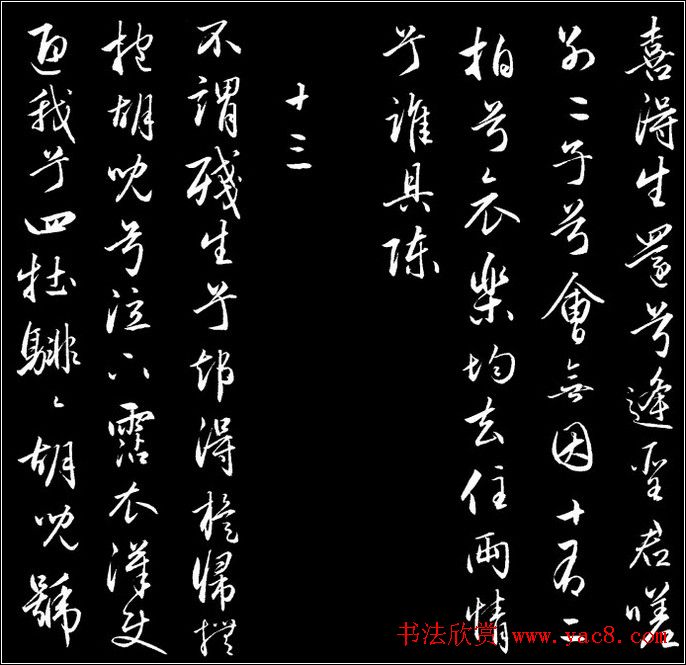 喜得生還兮逢聖君嗟
別二子兮會無因十有二
拍兮哀樂均去住兩情
兮誰具陳
十三
不謂殘生兮却得旋歸撫
抱胡兒兮泣下霑衣漢使
迎我兮四牡騑〻胡兒號
书法欣赏 www.yac8.com